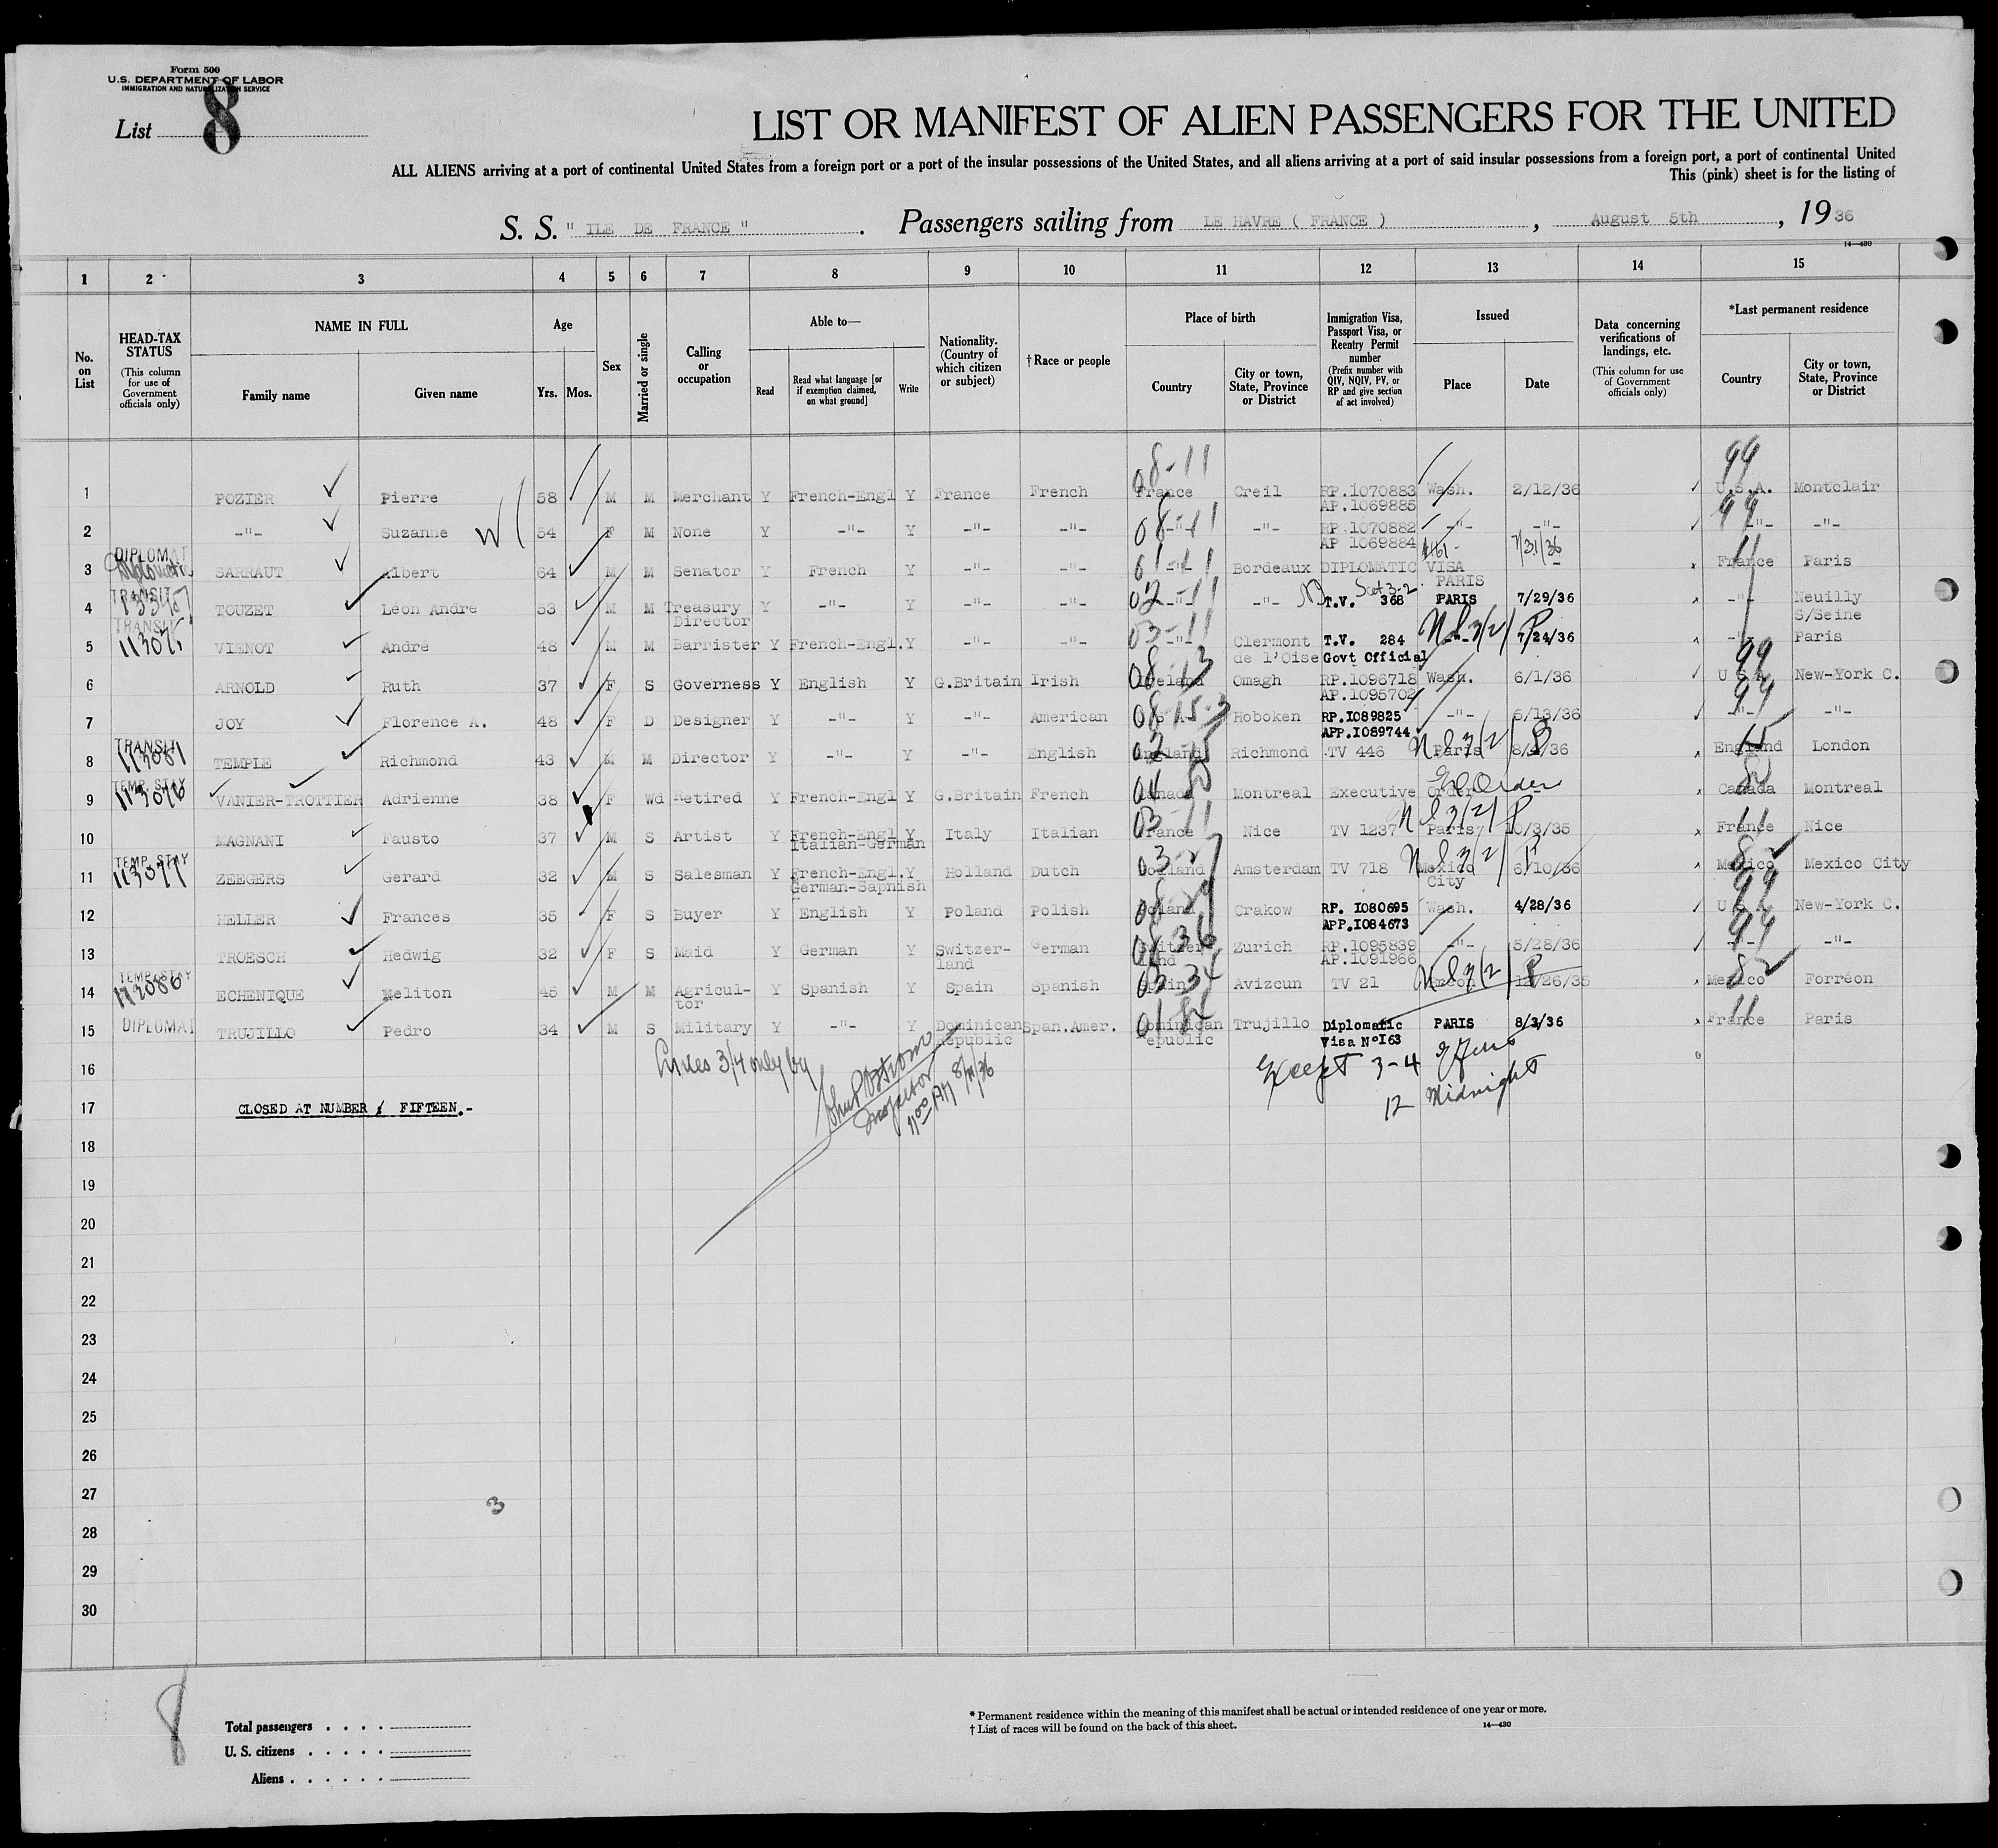 Form 500
U.S. DEPARTMENT OF LABOR
IMMIGRATION AND NATURALIZATION SERVICE
List 8
LIST OR MANIFEST OF ALIEN PASSENGERS FOR THE UNITED
ALL ALIENS arriving at a port of continental United States from a foreign port or a port of the insular possessions of the United States, and all aliens arriving at a port of said insular possessions from a foreign port, a port of continental United
This (pink) sheet is for the listing of
S. S. " ILE DE FRANCE " . Passengers sailing from LE HAVRE ( FRANCE ) , August 5th , 19 36
14—430
1 2 3 4 5 6 7 8 9 10 11 12 13 14 15
No. on List
HEAD-TAX STATUS (This column for use of Government officials only)
NAME IN FULL Family name Given name
Age Yrs. Mos.
Sex
Married or single
Calling or occupation
Able to— Read Read what language [or if exemption claimed, on what ground] Write
Nationality. (Country of which citizen or subject)
†Race or people
Place of birth Country City or town, State, Province or District
Immigration Visa, Passport Visa, or Reentry Permit number (Prefix number with QIV, NQIV, PV, or RP and give section of act involved)
Issued Place Date
Data concerning verifications of landings, etc. (This column for use of Government officials only)
*Last permanent residence Country City or town, State, Province or District
1 POZIER Pierre 58 M M Merchant Y French-Engl Y France French 08-11 France Creil RP.1070883 AP.1069885 Wash. 2/12/36 99 U.S.A. Montclair
2 -"- Suzanne W 54 F M None Y -"- Y -"- -"- 08-11 -"- -"- RP.1070882 AP 1069884 -"- -"- 99 -"- -"-
3 DIPLOMAT Diplomatic SARRAUT Albert 64 M M Senator Y French Y -"- -"- 61-11 -"- Bordeaux DIPLOMATIC VISA PARIS 7/31/36 11 France Paris
4 TRANSIT TOUZET Léon Andre 53 M M Treasury Director Y -"- Y -"- -"- 02-11 -"- -"- T.V. 368 Sect 3-2 PARIS 7/29/36 -"- Neuilly S/Seine
5 TRANSIT VIENOT André 48 M M Barrister Y French-Engl. Y -"- -"- 03-11 -"- Clermont de l'Oise T.V. 284 Govt Official -"- 7/24/36 -"- Paris
6 ARNOLD Ruth 37 F S Governess Y English Y G.Britain Irish 08-13 Ireland Omagh RP.1096718 AP.1095702 Wash. 6/1/36 99 U S A. New-York C.
7 JOY Florence A. 48 F D Designer Y -"- Y -"- American Hoboken RP.1089825 APP.1089744 -"- 5/13/36 99 -"- -"-
8 TRANSIT 113081 TEMPLE Richmond 43 M M Director Y -"- Y -"- English 02-15 England Richmond TV 446 Paris 15 England London
9 TEMP. STAY 113076 VANIER-TROTTIER Adrienne 38 F Wd Retired Y French-Engl Y G.Britain French Canada Montreal Executive Order Ex Order Canada Montreal
10 MAGNANI Fausto 37 M S Artist Y French-Engl Italian-German Y Italy Italian 03-11 France Nice TV 1237 Paris 10/3/35 11 France Nice
11 TEMP. STAY 113077 ZEEGERS Gerard 32 M S Salesman Y French-Engl. German-Sapnish Y Holland Dutch 03-27 Holland Amsterdam TV 718 Mexico City 6/10/36 82 Mexico Mexico City
12 HELLER Frances 35 F S Buyer Y English Y Poland Polish Poland Crakow RP. 1080695 APP.1084673 Wash. 4/28/36 99 U S A New-York C.
13 TROESCH Hedwig 32 F S Maid Y German Y Switzer-land German 08 36 Switzer-land Zurich RP.1095839 AP.1091966 -"- 5/28/36 99 -"- -"-
14 TEMP. STAY 113080 ECHENIQUE Meliton 45 M M Agricul-tor Y Spanish Y Spain Spanish 03 34 Spain Avizcun TV 21 12/26/35 82 Mexico Forréon
15 DIPLOMAT TRUJILLO Pedro 34 M S Military Y -"- Y Dominican Republic Span.Amer. Dominican Republic Trujillo Diplomatic Visa N°163 PARIS 8/3/36 11 France Paris
16 Lines 3/4 only by Inspector 11 00 AM 8/11/36 Except 3-4
12 Midnight
17 CLOSED AT NUMBER : FIFTEEN.-
18
19
20
21
22
23
24
25
26
27
3
28
29
30
8
Total passengers
U. S. citizens
Aliens
* Permanent residence within the meaning of this manifest shall be actual or intended residence of one year or more.
† List of races will be found on the back of this sheet.
14—430